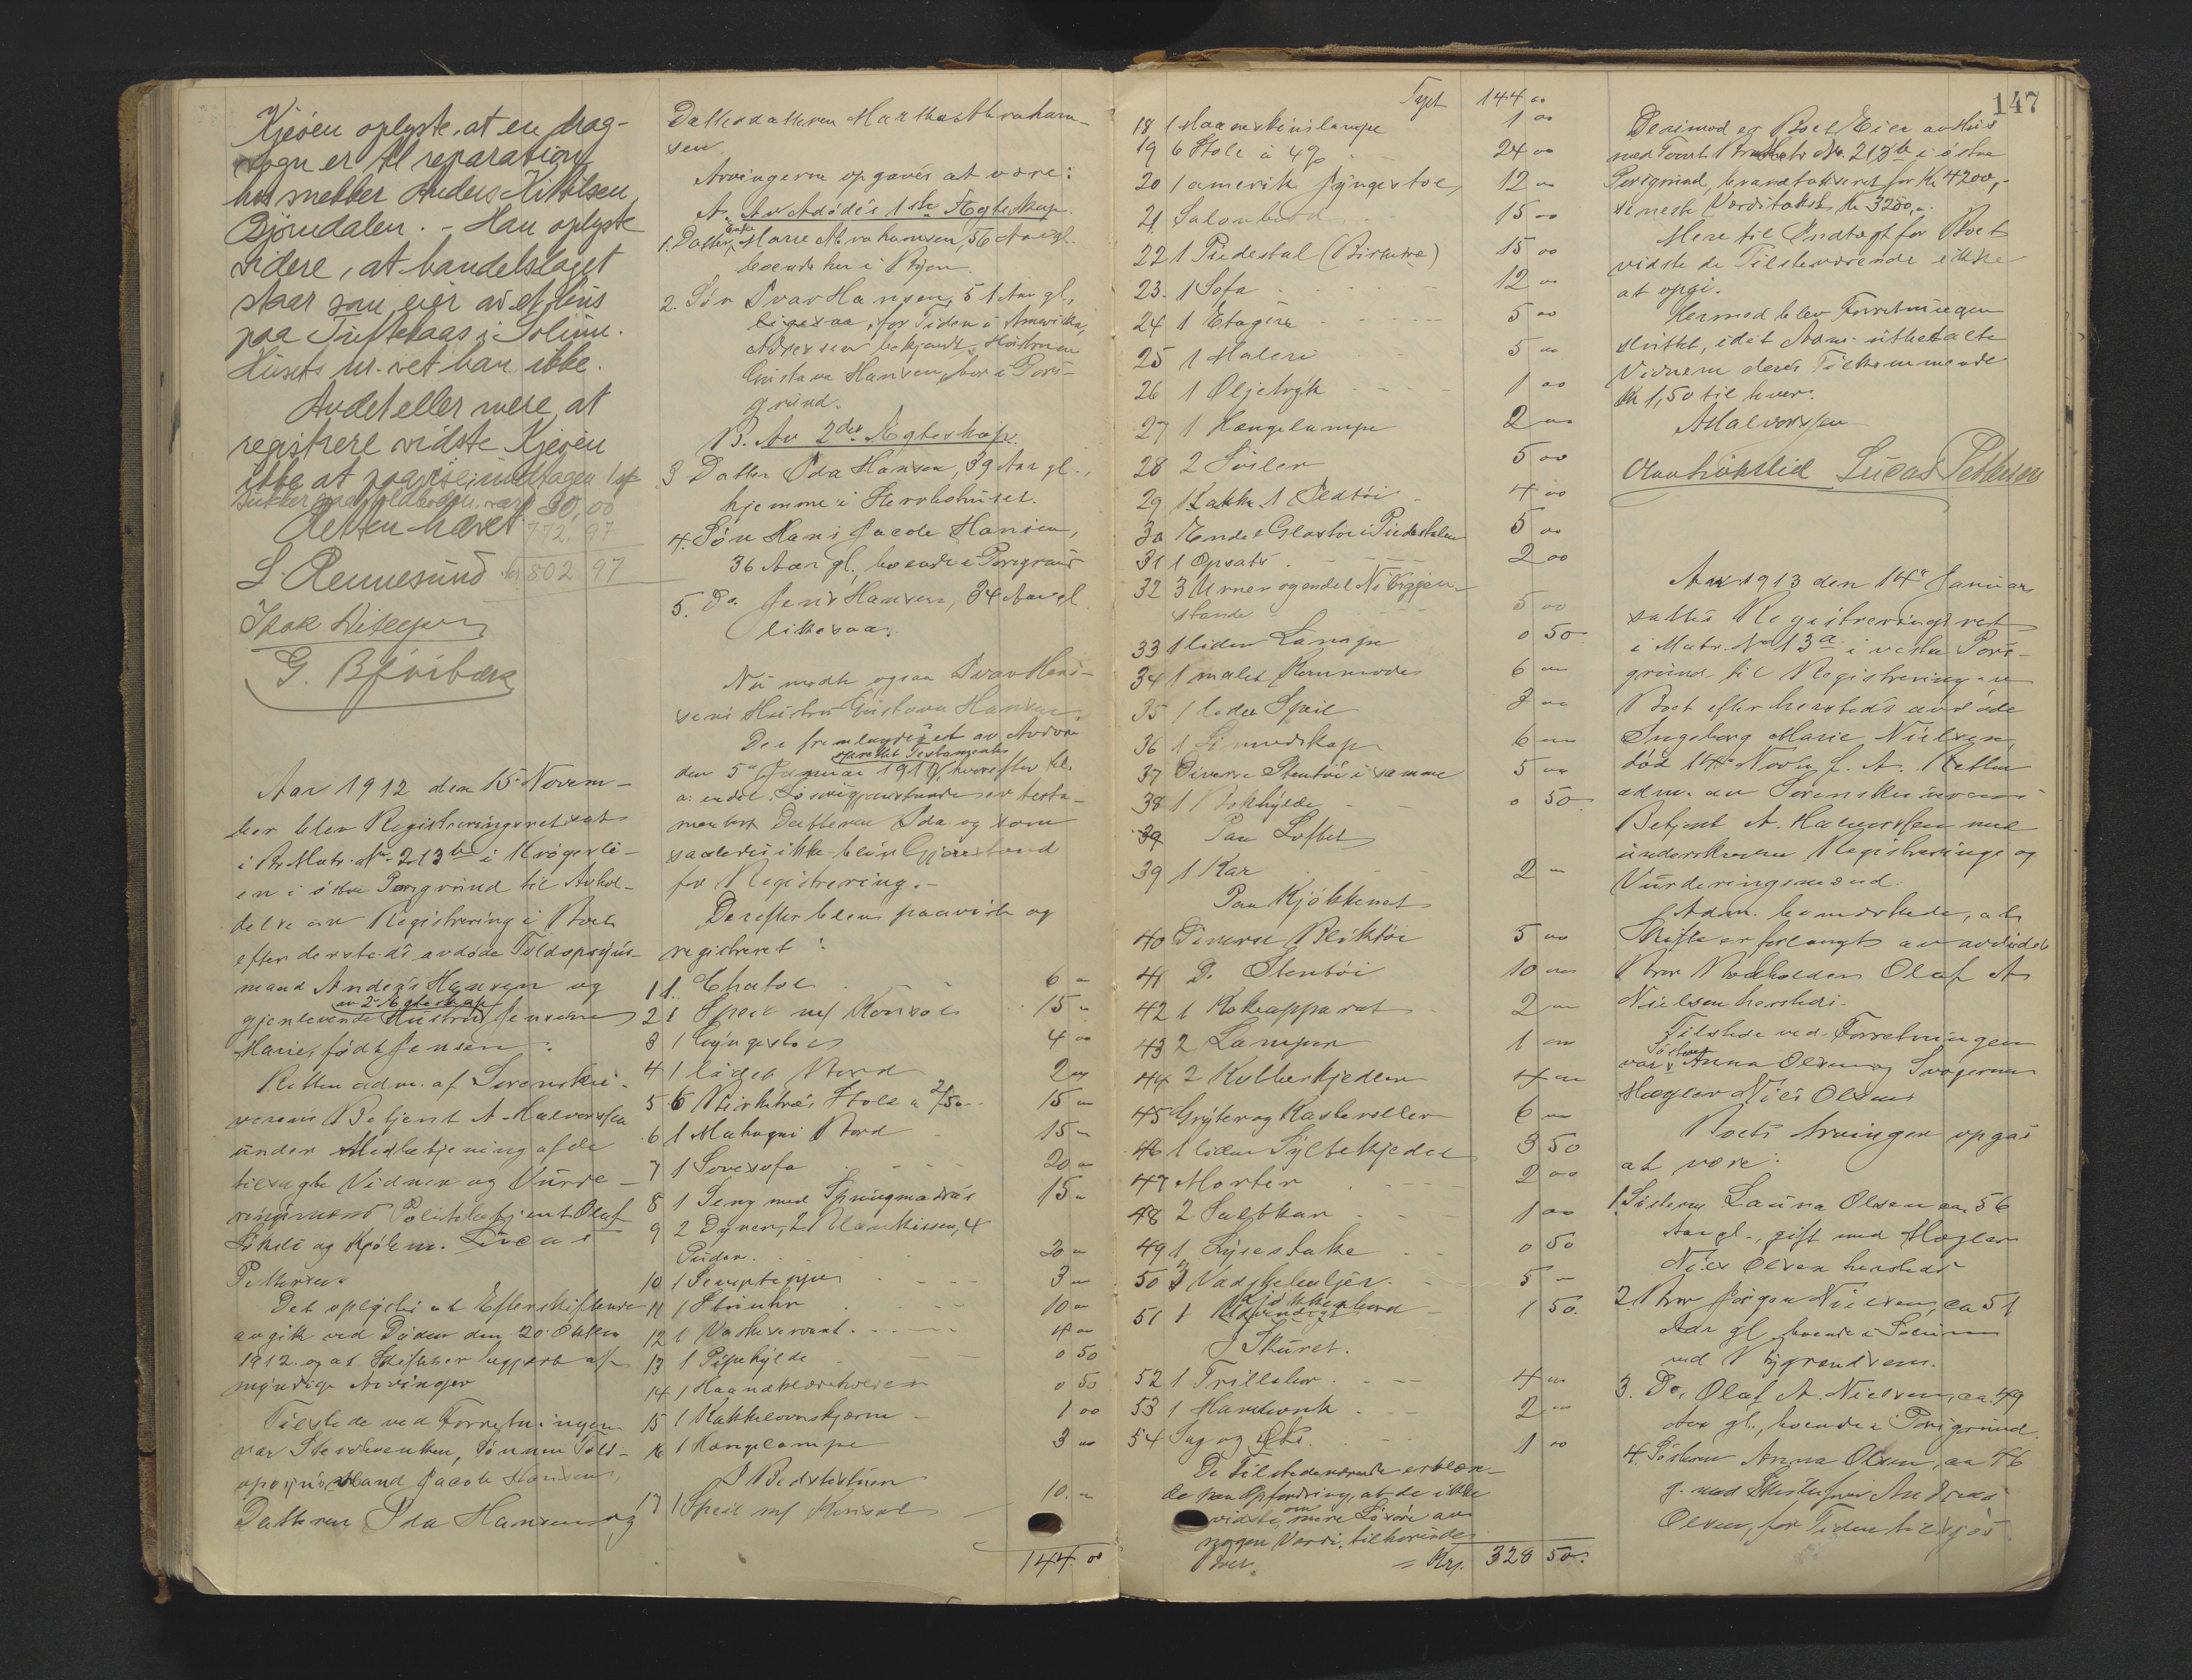 Kjøen oplyste, at en drag-
vogn er til reparation
hos snekker Anders Kittilsen
Bjørndalen. - Han oplyste
videre, at handelslaget
staar som eier av et hus
paa Tuftekaas i Solum.
Husets nr. vet han ikke.
Andet eller mere at
registrere vidste Kjøen
ikke at paavise,
30,00
Retten hævet. 772,97
L. Rennesund kr 802 97
Isak
G.
Aar 1912 den 15 Novem-
ber blev Registreringsret sat
i Br. Matr. No. 213 b i
en i østre Porsgrund til Avhol-
delse av Registrering i Boet
efter dersteds avdøde Toldopsyns-
mand Anders Hansen og
av 2. Egteskap
gjenlevende Hustru
Marie, født Jensen:
Retten adm. af Sorenskri-
verens Betjent A. Halvorsen
under Medbetjening af de
tilsagte Vidner og Vurde-
ringsmænd Politibetjent Olaf
og Lucas
Pettersen
Det oplystes at Efterskifteren
avgik ved Døden den 20 Oktbr
1912 og at Skiftet er begjært af
myndige Arvinger
Tilstede ved Forretningen
var Sterbeenken, Sønnen Told-
opsynsmand Jacob Hansen,
Datteren Ida Hansen og
Datterdatteren Martha Abraham-
sen.
Arvingerne opgaves at være:
A. Av Avdødes 1ste Ægteskap.
1. Datter, Enke Marie Abrahamsen, 56 Aar gl.
boende her i Byen
2. Søn Ivar Hansen, 51 Aar gl.,
for Tiden i Amerika,
Adressen bekjendt. Hustruen
Gustava Hansen, bor i Pors-
grund.
B. Av 2det Ægteskap.
3 Datter Ida Hansen, 39 Aar gl.,
hjemme i Sterbohuset.
4. Søn Hans Jacob Hansen,
36 Aar gl. boende i Porsgrund
5. Do Jens Hansen, 34 Aar gl
likesaa.
Nu mødte ogsaa Ivar Han-
sens Hustru Gustava Hansen.
Der fremlagdes et av Avdøde
oprettet Testamente
den 5te Januar 191 hvorefter bl.
a. endel Løsøregjenstande er testa-
mentert Datteren Ida og som
saaledes ikke blev Gjenstand
for Registrering. -
Derefter blev paavist og
registreret:
1 1 Chatol 6 "
2 1 Speil m/ Konsol 15 "
3 1 Gyngestol 4 00
4 1 lidet Bord 2 00
5 6 Birketræs Stole a 2/50 15 "
6 1 Mahogni Bord 15 "
7 1 Sovesofa 20 00
8 1 Seng med Springmadras 15 "
9 2 Dyner, 2 Uldne Kissen, 4
Puder. 20 "
10 1 Sengeteppe 3 "
11 1 Stueuhr 10 "
12 1 Vaskeservant 4 "
13 1 Pipehylde 0 50
14 1 Haandklædeholder 0 50
15 1 Kakkelovnskjærm 1 00
16 1 Hængelampe 3 00
I Bedstestuen
17 1 Speil m/ Konsol 10. "
144. 00
147
Tpt 144 00
18 1 Maaneskinslampe 1 00
19 6 Stole à 4% 24 00
20 1 amerik Gyngestol 12 00
21 Salonbord 15 00
22 1 Piedestal (Birketræ) 15 00
23. 1 Sofa 12 00
24 1 Etagere 5 00
25 1 Maleri 5 00
26 1 Oljetryk 1 00
27 1 Hængelampe 2 00
28 2 Søiler 5 00
29 1 Kakke. 1 4 00
30 Endel Glastøi i Piedestalen 5 00
31 1 Opsats 2 00
32 3 Urner og endel Nipsgjen-
stande 5 00
33 1 liden Lampe 0 50
34 1 malet Kommode 6 00
35 1 lidet Speil 3 00
36 1 Linnedskap 6 00
37 Diverse Stentøi i samme 5 00
38 1 Bokhylde 0 50
39 Paa Loftet
39 1 Kar 2 "
Paa Kjøkkenet
40 Diverse Bliktøi 5 00
41 Do Stentøi 10 00
42 1 Kokeapparat 2 00
43 2 Lamper 1 00
44 2 Kobberkjedler 4 00
45 Gryter og Kasteroller 6 00
46 1 liden Syltekjedel 3 50
47 Morter 2 00
48 2 Saltkar 1 00
49 1 Lysestake 0 50
50 3 Vaskebaljer 5 "
51 1 Kjøkkenbord 1 50.
I Skuret.
52 1 Trillebør 4 00
53 1 Høvelbænk 2 00
54 Sag og Øks 1 00
De Tilstedeværende erklær-
te paa Opfordring, at de ikke
vidste om mere Løsøre av
nogen Verdi, tilhørende
Boet. = Kr. 328 50.
Derimod er Boet Eier av Hus
med Tomt Br. Matr. No. 213 b i østre
Porsgrund, brandtakseret for Kr 4200,-
seneste Verditakst Kr 3200,-.
Mere til Indtægt for Boet
vidste de Tilstedeværende ikke
at opgi.
Hermed blev Forretningen
sluttet, idet Adm. utbetalte
Vidnerne deres Tilkommende
Kr 1,50 til hver.
AHalvorsen
Lucas Pettersen
Aar 1913 den 14de Januar
sattes Registreringsret
i Matr. No 13 a i vestre Pors-
grund til Registrering av
Boet efter hersteds avdøde
Ingeborg Marie Nielsen,
død 14de Novbr. f. A. Retten
adm. av Sorenskriverens
Betjent A. Halvorsen med
underskrevne Registrerings og
Vurderingsmænd.
Adm. bemerkede, at
Skifte er forlangt av avdødes
Bror Olaf A
Nielsen hersteds.
Tilstede ved Forretningen
var Søster Anna Olsen og Svogeren
Mægler Nils Olsen
Boets Arvinger opgas
at være:
1. Søsteren Laura Olsen ca 56
Aar gl., gift med Mægler
Nils Olsen hersteds
2. Bror Jørgen Nielsen, ca 51
Aar gl boende i Solum
ved
3. Do, Olaf A. Nielsen, ca. 49
Aar gl., boende i Porsgrund.
4. Søsteren Anna Olsen, ca 46
g. med Andreas
Olsen, for Tiden tilsjøs